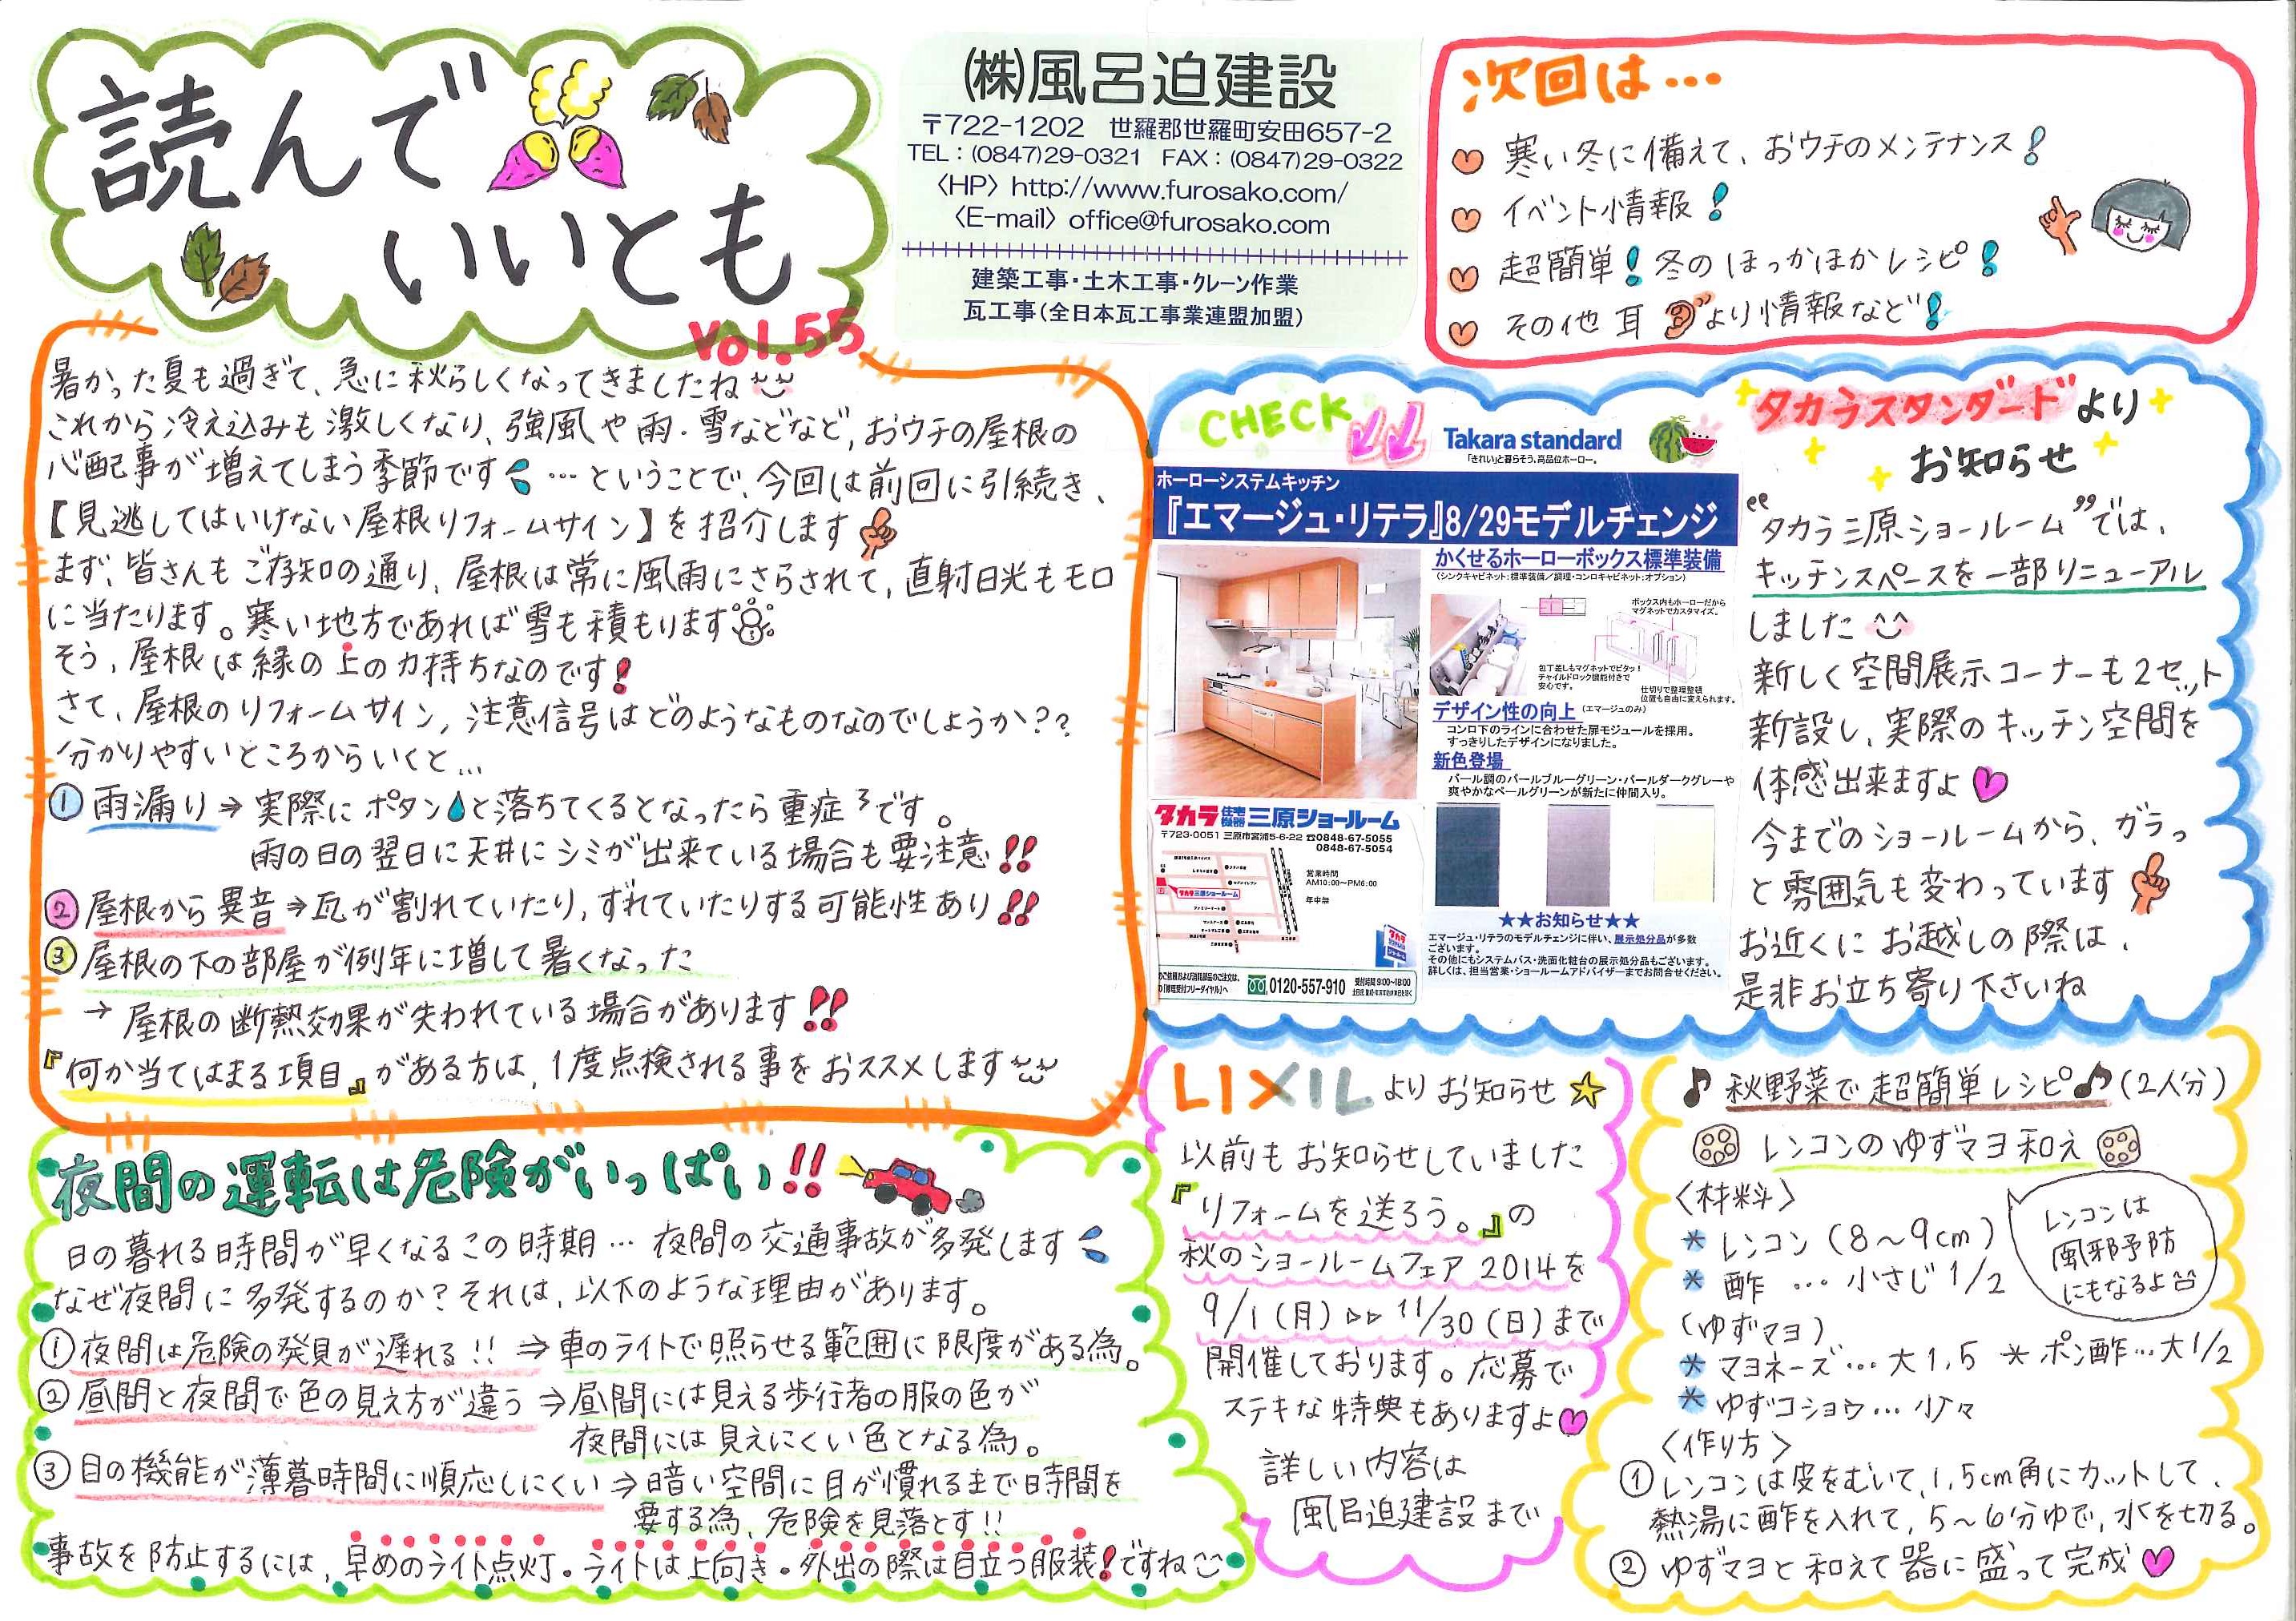 読んで
いいとも
Vol.55
㈱風呂迫建設
〒722-1202 世羅郡世羅町安田657-2
TEL：(0847)29-0321 FAX：(0847)29-0322
〈HP〉http://www.furosako.com/
〈E-mail〉office@furosako.com
建築工事・土木工事・クレーン作業
瓦工事(全日本瓦工事業連盟加盟)
次回は…
寒い冬に備えて、おウチのメンテナンス!
イベント情報!
超簡単!冬のほっかほかレシピ!
その他耳より情報など!
暑かった夏も過ぎて、急に秋らしくなってきましたね
これから冷え込みも激しくなり、強風や雨・雪などなど、おウチの屋根の
心配事が増えてしまう季節です…ということで、今回は前回に引続き、
【見逃してはいけない屋根リフォームサイン】を招介します
まず、皆さんもご存知の通り、屋根は常に風雨にさらされて、直射日光もモロ
に当たります。寒い地方であれば雪も積もります
そう、屋根は縁の上の力持ちなのです!
さて、屋根のリフォームサイン、注意信号はどのようなものなのでしょうか??
分かりやすいところからいくと…
① 雨漏り⇒実際にポタンと落ちてくるとなったら重症です。
雨の日の翌日に天井にシミが出来ている場合も要注意!!
② 屋根から異音⇒瓦が割れていたり、ずれていたりする可能性あり!!
③ 屋根の下の部屋が例年に増して暑くなった
→屋根の断熱効果が失われている場合があります!!
『何か当てはまる項目』がある方は、1度点検される事をおススメします
CHECK
Takara standard
「きれい」と暮らそう。高品位ホーロー。
ホーローシステムキッチン
『エマージュ・リテラ』8/29モデルチェンジ
かくせるホーローボックス標準装備
(シンクキャビネット:標準装備/調理・コンロキャビネット:オプション)
ボックス内もホーローだから
マグネットでカスタマイズ。
包丁差しもマグネットでピタッ!
チャイルドロック機能付きで
安心です。
仕切りで整理整頓
位置も自由に変えられます。
デザイン性の向上 (エマージュのみ)
コンロ下のラインに合わせた扉モジュールを採用。
すっきりしたデザインになりました。
新色登場
パール調のパールブルーグリーン・パールダークグレーや
爽やかなペールグリーンが新たに仲間入り。
★★お知らせ★★
エマージュ・リテラのモデルチェンジに伴い、展示処分品が多数
ございます。
その他にもシステムバス・洗面化粧台の展示処分品もございます。
詳しくは、担当営業・ショールームアドバイザーまでお問合せください。
タカラ住宅機器 三原ショールーム
〒723-0051 三原市宮浦5-6-22 ☎0848-67-5055
0848-67-5054
タカラ三原ショールーム
営業時間
AM10:00～PM6:00
年中無
0120-557-910 受付時間 9:00～18:00
タカラスタンダードより
お知らせ
“タカラ三原ショールーム”では、
キッチンスペースを一部リニューアル
しました
新しく空間展示コーナーも2セット
新設し、実際のキッチン空間を
体感出来ますよ
今までのショールームから、ガラっ
と雰囲気も変わっています
お近くにお越しの際は、
是非お立ち寄り下さいね
夜間の運転は危険がいっぱい!!
日の暮れる時間が早くなるこの時期…夜間の交通事故が多発します
なぜ夜間に多発するのか?それは、以下のような理由があります。
①夜間は危険の発見が遅れる!!⇒車のライトで照らせる範囲に限度がある為。
②昼間と夜間で色の見え方が違う⇒昼間には見える歩行者の服の色が
夜間には見えにくい色となる為。
③目の機能が薄暮時間に順応しにくい⇒暗い空間に目が慣れるまで時間を
要する為、危険を見落とす!!
事故を防止するには、早めのライト点灯。ライトは上向き。外出の際は目立つ服装!ですね
LIXILよりお知らせ☆
以前もお知らせしていました
『リフォームを送ろう。』の
秋のショールームフェア2014を
9/1(月)▷▷11/30(日)まで
開催しております。応募で
ステキな特典もありますよ
詳しい内容は
風呂迫建設まで
♪秋野菜で超簡単レシピ♪(2人分)
レンコンのゆずマヨ和え
〈材料〉
＊レンコン(8～9cm)
＊酢 …小さじ1/2
レンコンは
風邪予防
にもなるよ
(ゆずマヨ)
＊マヨネーズ…大1.5 ＊ポン酢…大1/2
＊ゆずコショウ…少々
〈作り方〉
①レンコンは皮をむいて、1.5cm角にカットして、
熱湯に酢を入れて、5～6分ゆで、水を切る。
②ゆずマヨと和えて器に盛って完成